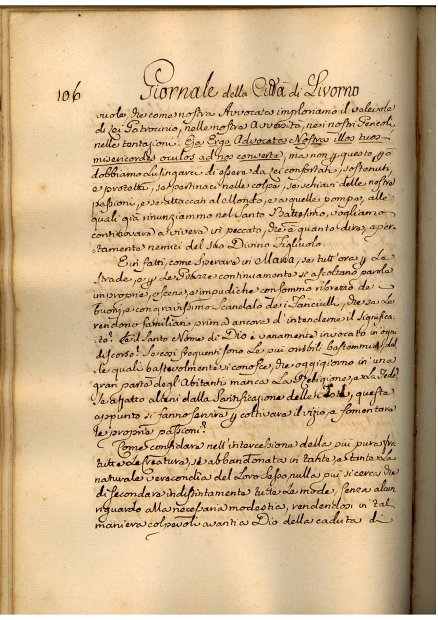 106
Giornale della Città di Livorno
vuole, che come nostra Avvocata imploriamo il valevole
di Lei Patrocinio, nelle nostre Avversità, nei nostri Pericoli,
nelle tentazioni: Eja Ergo Advocata Nostra illos tuos
misericordes oculos ad nos converte, ma non per questo
dobbiamo lusingarci di essere da Lei confortati, sostenuti,
e protetti, se ostinati nelle colpe, se schiavi delle nostre
passioni, e se attaccati al Mondo, e a quelle pompe, alle
quali già rinunziammo nel Santo Battesimo, vogliamo
continovare a vivere in peccato, che è quanto dire, aper-
tamente nemici del Suo Divino Figliuolo.
E infatti, come sperare in Maria, se tutt'ora per le
Strade, e per le Piazze continuamente si ascoltano parole
improprie, oscene, e impudiche con sommo ribrezzo de'
buoni, e con gravissimo Scandalo dei Fanciulli, che se le
rendono familiari prima ancora d'intenderne il significa-
to? Se il Santo Nome di Dio è vanamente invocato in ogni
discorso? Se così frequenti sono le più orribili bestemmie, dal-
le quali bastevolmente si conosce, che oggigiorno in una
gran parte degl'Abitanti manca la Religione, e la Fede?
Se affatto alieni dalla Santificazione delle Feste, queste
appunto si fanno servire per coltivare il vizio, e fomentare
le proprie passioni?
Come confidare nell'intercessione della più pura fra
tutte le Creature, se abbandonata in tante, e tante la
naturale verecondia del loro Sesso, nulla più si cerca che
di secondare indistintamente tutte le mode, senza alcun
riguardo alla necessaria modestia, rendendosi in tal
maniera colpevoli avanti a Dio della caduta di